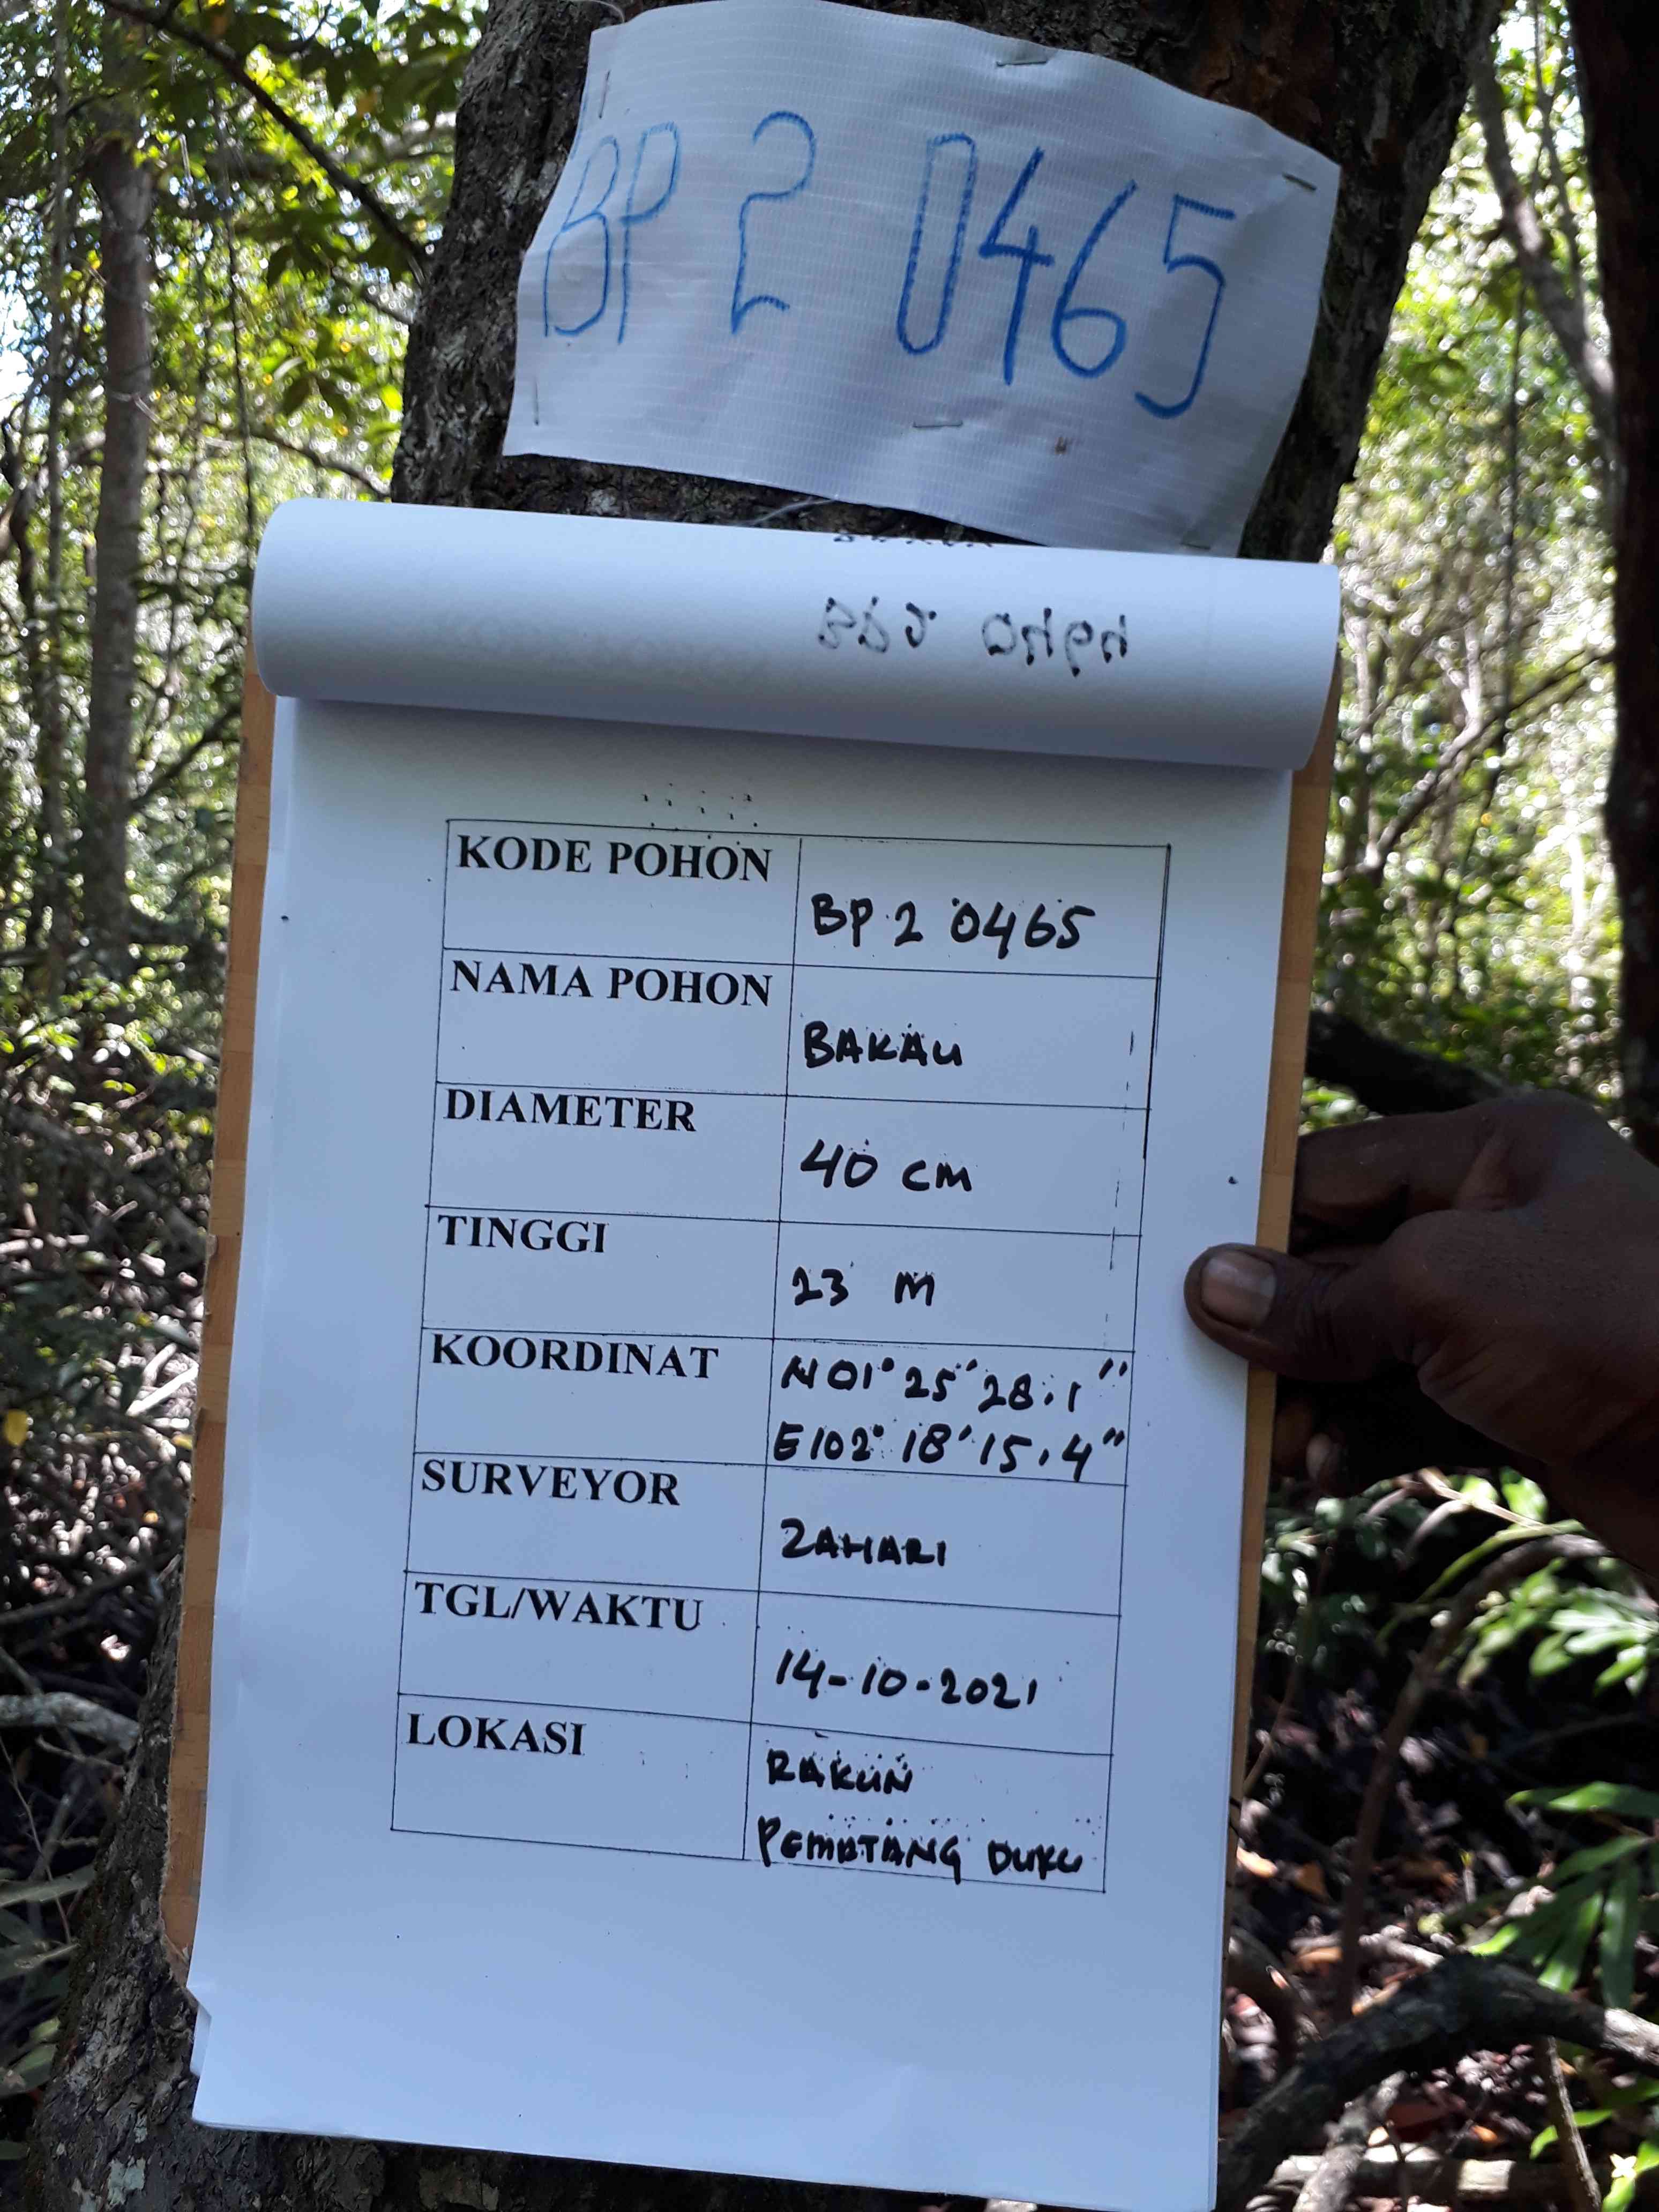 BP 2 0465
KODE POHON
BP 2 0465
NAMA POHON
BAKAU
DIAMETER
40 CM
TINGGI
23 M
KOORDINAT
N 01° 25' 28.1"
E 102° 18' 15.4"
SURVEYOR
ZAHARI
TGL/WAKTU
14-10-2021
LOKASI
RAKUN
PEMATANG DUKU